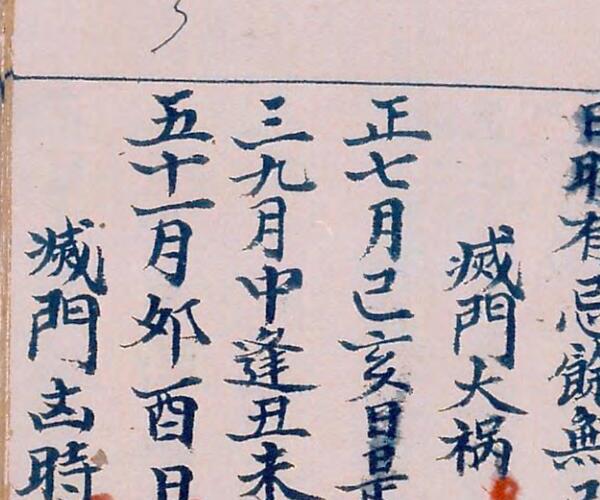 有忌餘無
滅門大祸
正七月己亥日
三九月中逢丑未
五十一月夘酉日
滅門凶時